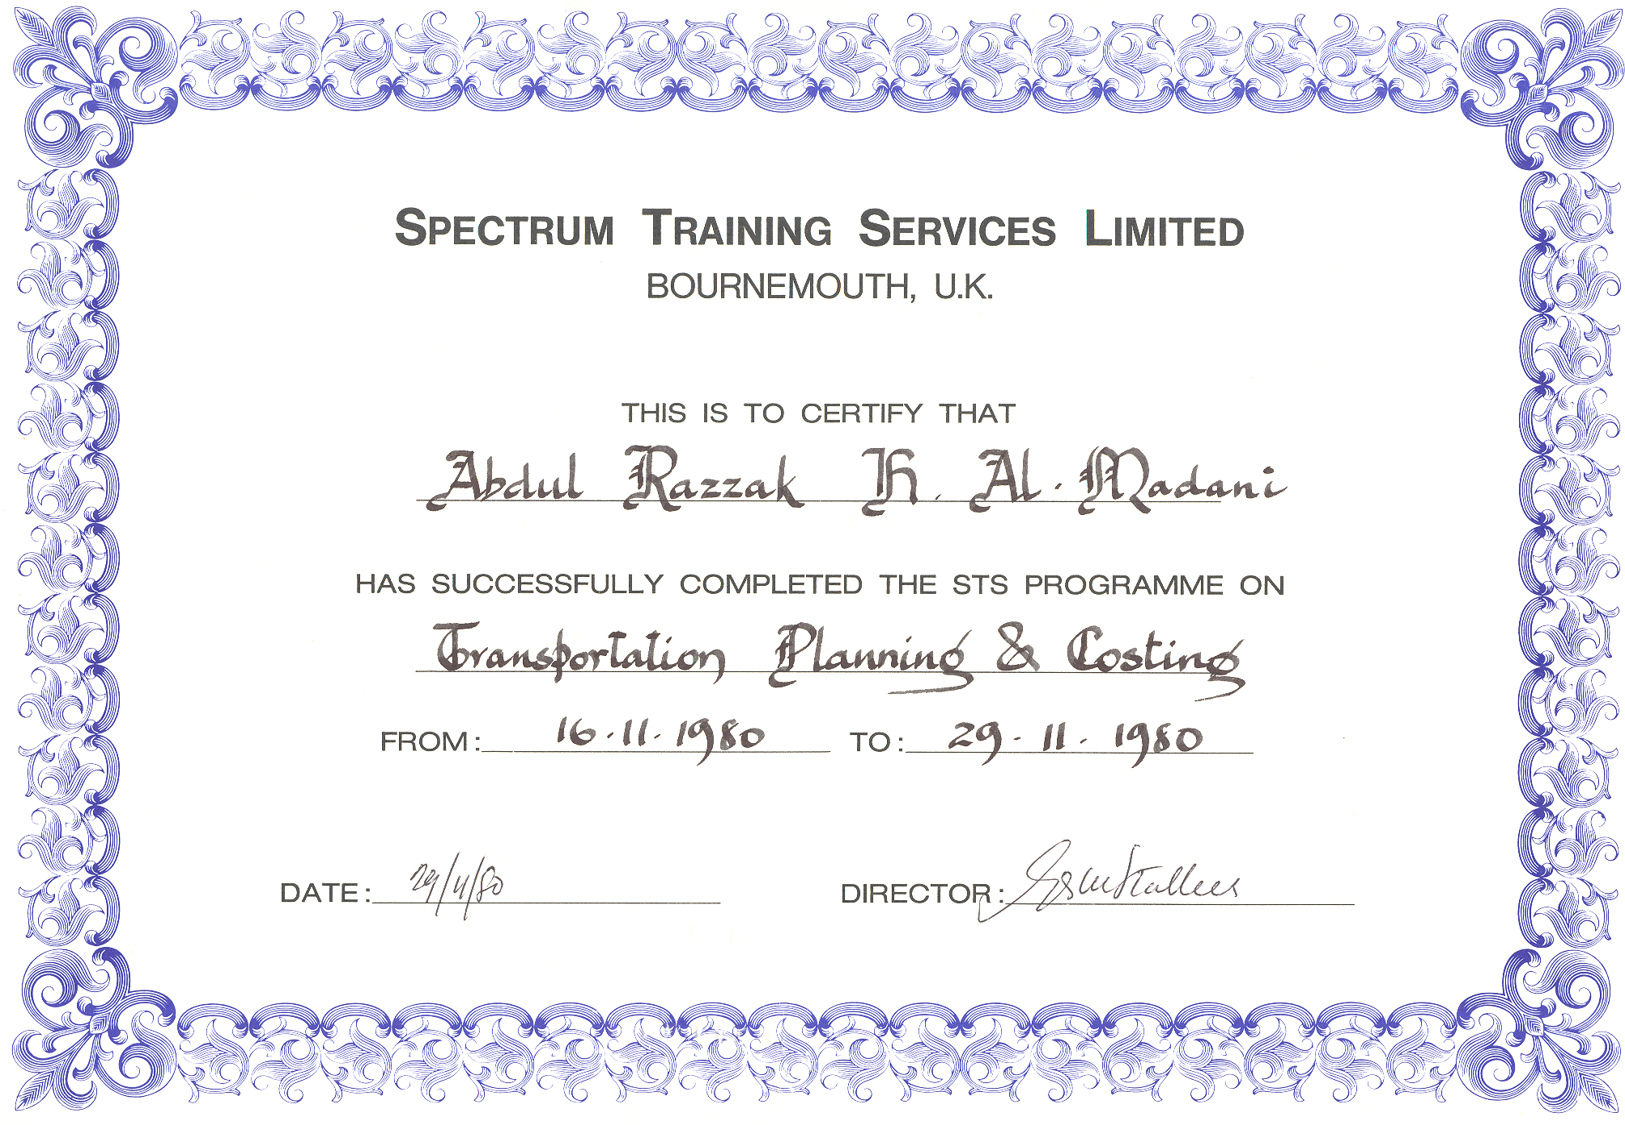 SPECTRUM TRAINING SERVICES LIMITED
BOURNEMOUTH, U.K.
THIS IS TO CERTIFY THAT
Abdul Razzak H. Al-Madani
HAS SUCCESSFULLY COMPLETED THE STS PROGRAMME ON
Transportation Planning & Costing
FROM: 16.11.1980 TO: 29.11.1980
DATE: 29/11/80 DIRECTOR: